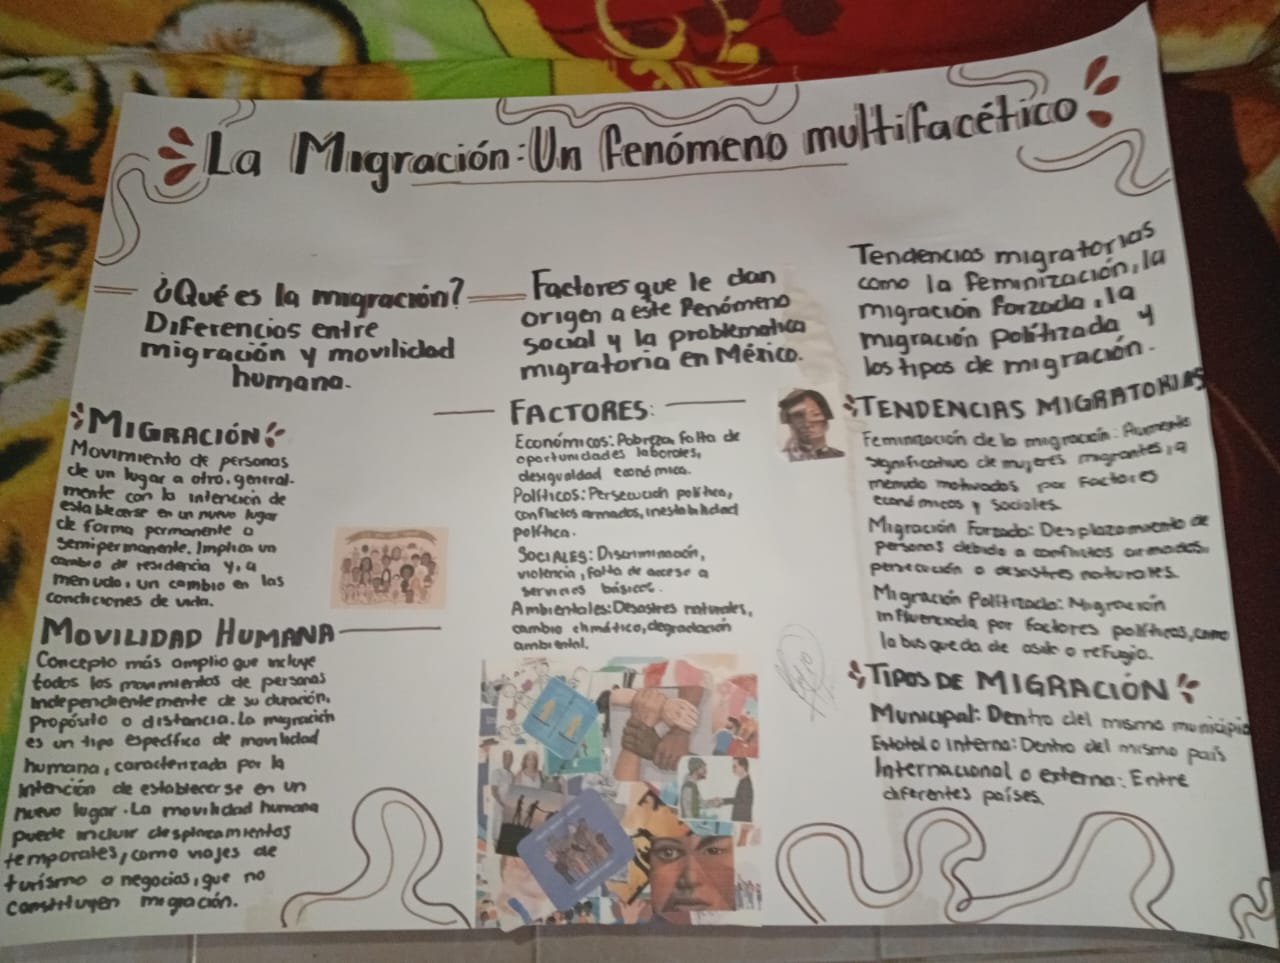 La Migración: Un fenómeno multifacético
¿Qué es la migración?
Diferencias entre
migración y movilidad
humana.
MIGRACIÓN
Movimiento de personas
de un lugar a otro, general-
mente con la intención de
establecerse en un nuevo lugar
de forma permanente o
semipermanente. Implica un
cambio de residencia y, a
menudo, un cambio en las
condiciones de vida.
MOVILIDAD HUMANA
Concepto más amplio que incluye
todos los movimientos de personas
independientemente de su duración,
propósito o distancia. La migración
es un tipo específico de movilidad
humana, caracterizada por la
intención de establecerse en un
nuevo lugar. La movilidad humana
puede incluir desplazamientos
temporales, como viajes de
turismo o negocios, que no
constituyen migración.
Factores que le dan
origen a este Fenómeno
social y la problematica
migratoria en México.
FACTORES:
Económicos: Pobreza, falta de
oportunidades laborales,
desigualdad económica.
Políticos: Persecución política,
conflictos armados, inestabilidad
política.
SOCIALES: Discriminación,
violencia, falta de acceso a
servicios básicos.
Ambientales: Desastres naturales,
cambio climático, degradación
ambiental.
Tendencias migratorias
como la feminización, la
migración forzada, la
migración politizada y
los tipos de migración.
TENDENCIAS MIGRATORIAS
Feminización de la migración: Aumento
significativo de mujeres migrantes, a
menudo motivados por factores
económicos y sociales.
Migración Forzada: Desplazamiento de
personas debido a conflictos armados,
persecución o desastres naturales.
Migración Politizada: Migración
influenciada por factores políticos, como
la busqueda de asilo o refugio.
TIPOS DE MIGRACIÓN
Municipal: Dentro del mismo municipio
Estatal o interna: Dentro del mismo país
Internacional o externa: Entre
diferentes países.